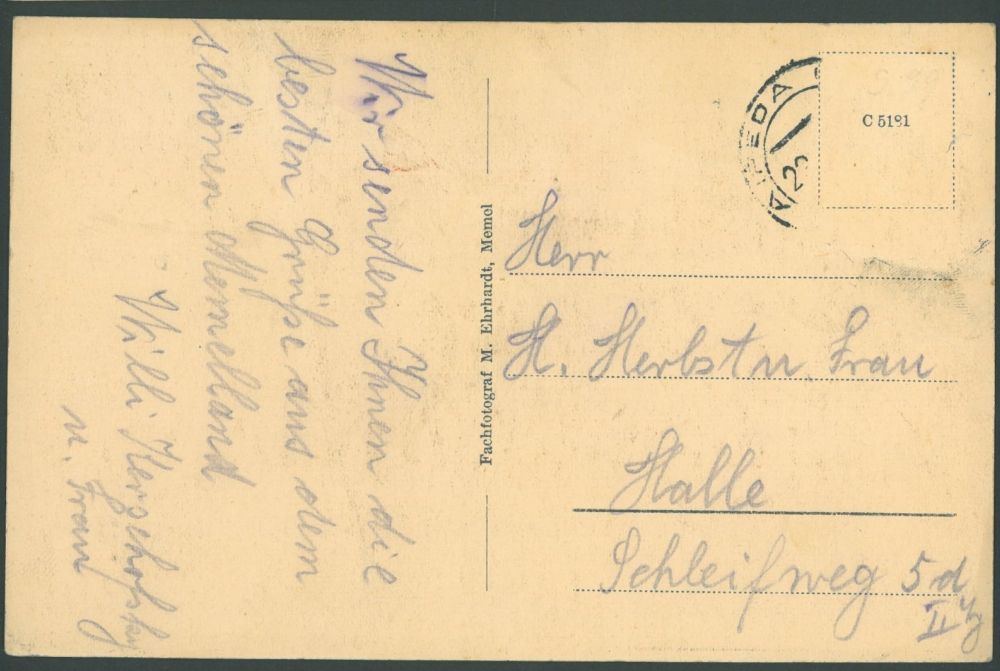 Wir senden Ihnen die
besten Grüße aus dem
schönen Memelland
Willi
u. Frau
Fachfotograf M. Ehrhardt, Memel
C 5181
Herr
H. Herbst u. Frau
Halle
Schleifweg 5 d
II